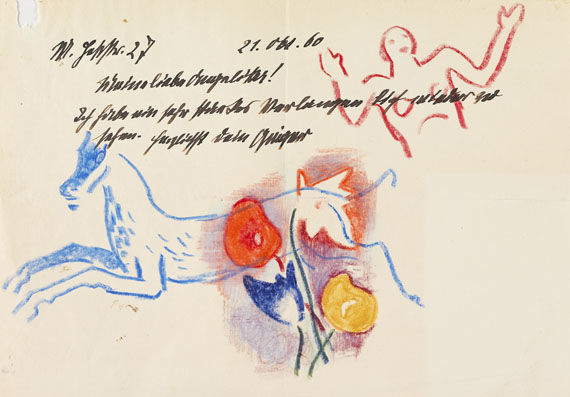 27 21. Okt. 60
Meine liebe
Ich habe ein sehr starkes Verlangen Dich wieder zu
sehen. Herzlichst Dein